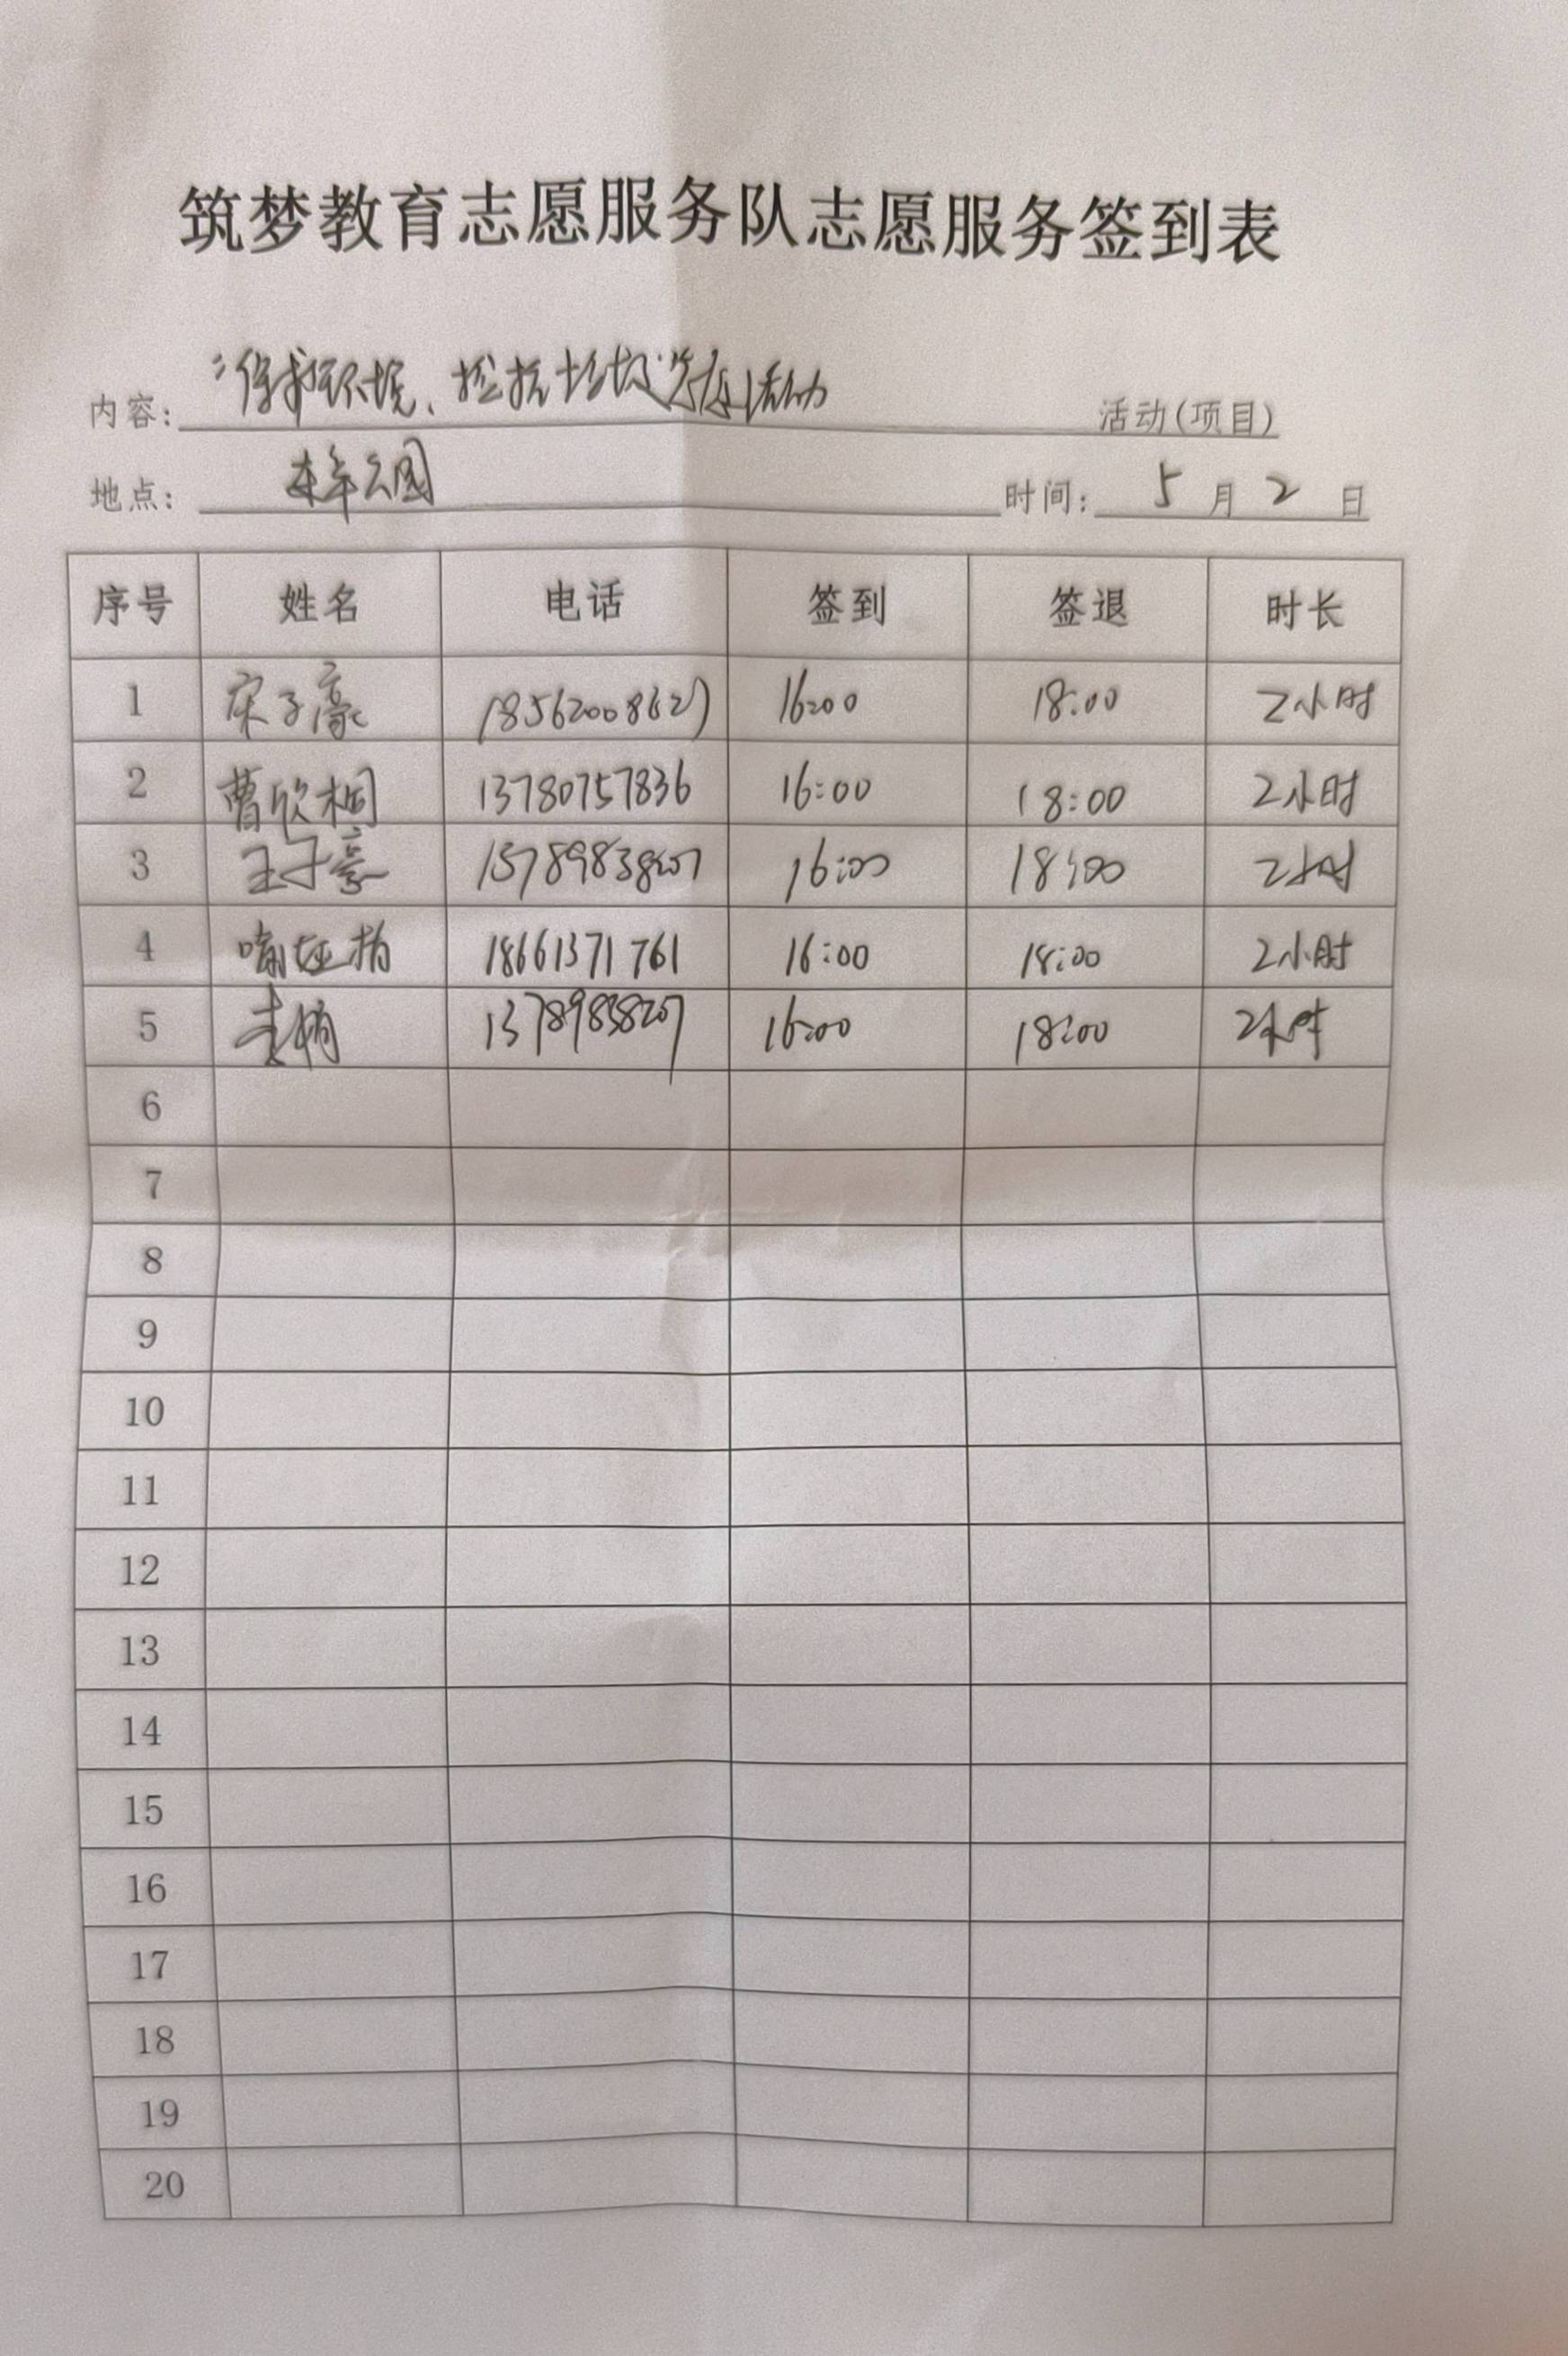 筑梦教育志愿服务队志愿服务签到表
内容: "保护环境、捡拾垃圾"志愿活动 活动(项目)
地点: 公园 时间: 5月2日
序号 姓名 电话 签到 签退 时长
1 宋子豪 16:00 18:00 2小时
2 曹欣桐 13780757836 16:00 18:00 2小时
3 王子豪 16:00 18:00 2小时
4 18661371761 16:00 18:00 2小时
5 16:00 18:00 2小时
6
7
8
9
10
11
12
13
14
15
16
17
18
19
20